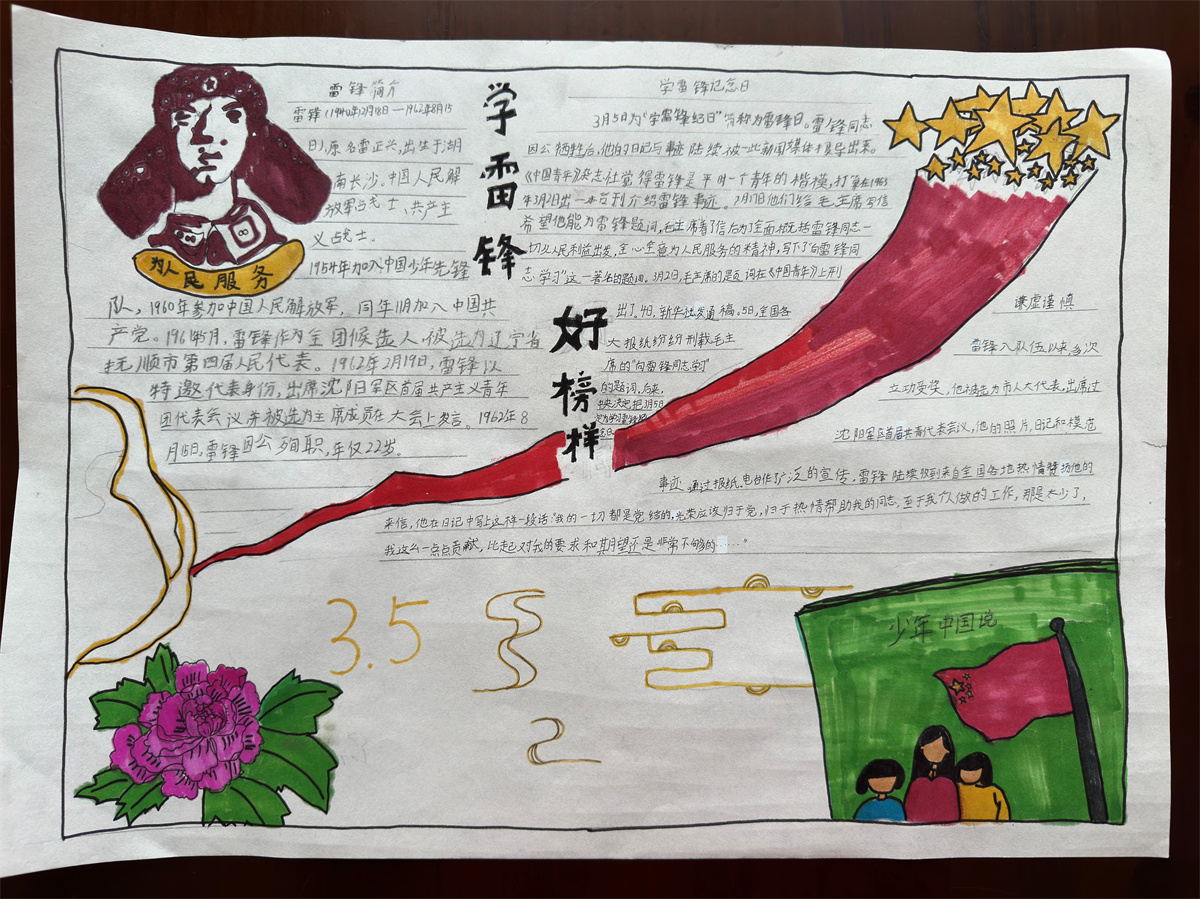 学雷锋
好榜样
为人民服务
雷锋简介
雷锋(1940年12月18日—1962年8月15
日),原名雷正兴,出生于湖
南长沙。中国人民解
放军战士、共产主
义战士。
1954年加入中国少年先锋
队,1960年参加中国人民解放军,同年11月加入中国共
产党。1961年5月,雷锋作为主团候选人,被选为辽宁省
抚顺市第四届人民代表。1962年2月19日,雷锋以
特邀代表身份,出席沈阳军区首届共产主义青年
团代表会议并被选为主席成员在大会上发言。1962年8
月15日,雷锋因公殉职,年仅22岁。
学雷锋记念日
3月5日为“学雷锋纪日”
称为雷锋日。雷锋同志
因公牺牲后,他的日记与事迹陆续被一些新闻媒体
导出来。
《中国青年》杂志社觉得雷锋是平时一个青年的楷模,打算在1963
年3月2日出一本专刊介绍雷锋事迹。2月17日他们给毛主席写信
希望他能为雷锋题词,毛主席看了信后为了全面概括雷锋同志一
切以人民利益出发,全心全意为人民服务的精神,写下了“向雷锋同
志学习”这一著名的题词。3月2日,毛主席的题词在《中国青年》上刊
出了。4日,新华社发通稿。5日,全国各
大报纸纷纷刊载毛主
席的“向雷锋同志学习”
的题词。后来,
中央决定把3月5日
谦虚谨慎
雷锋入队伍以来多次
立功受奖,他被选为市人大代表,出席过
沈阳军区首届共青代表会议,他的照片,日记和模范
事迹通过报纸、电台作了广泛的宣传。雷锋陆续收到来自全国各地热情赞扬他的
来信,他在日记中写上这样一段话:“我的一切都是党给的,光荣应该归于党,归于热情帮助我的同志。至于我个人做的工作,那是太少了,
我这么一点点贡献,比起对我的要求和期望还是非常不够的……”
3.5
少年中国说